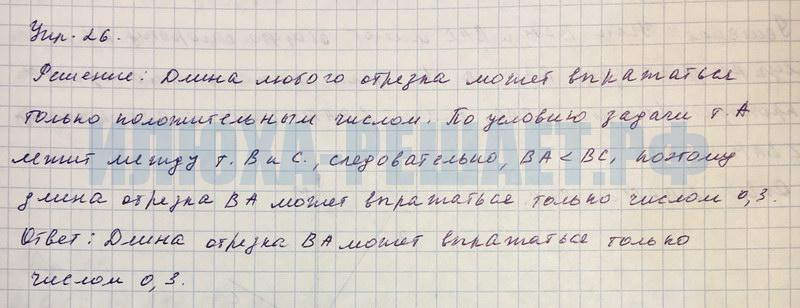 Упр. 26.
Решение: Длина любого отрезка может выражаться
только положительным числом. По условию задачи т. А
лежит между т. В и С., следовательно, ВА < ВС, поэтому
длина отрезка ВА может выражаться только числом 0,3.
Ответ: Длина отрезка ВА может выражаться только
числом 0,3.
ИЛЮХА-РЕШАЕТ.РФ